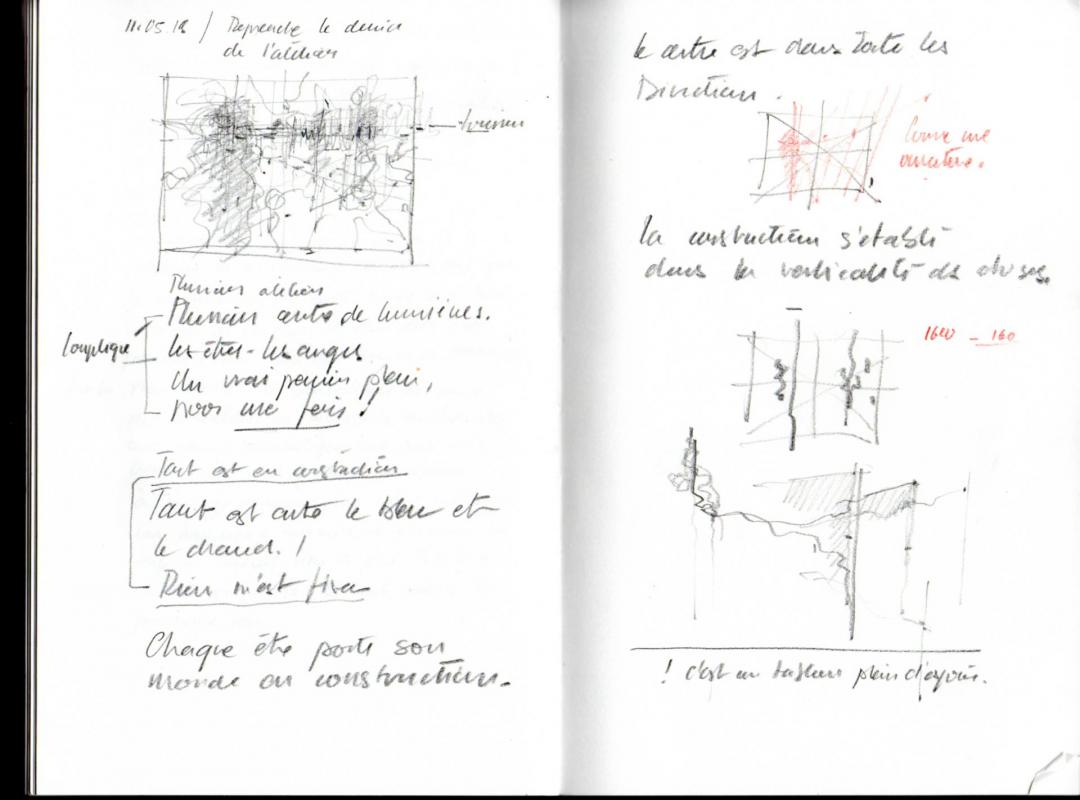 11.05.18 / Reprendre le dessin
de l'atelier
Plusieurs ateliers
Plusieurs centre de lumières.
les êtres - les anges
Un vrai panier plein,
pour une fois !
Tout est en construction
Tout est entre le bleu et
le chaud. !
Rien n'est fixe
Chaque être porte son
monde en construction.
le centre est dans toute les
Directions.
Comme une
ossature.
la construction s'établi
dans la verticalité des choses.
160
! c'est un tableau plein d'espoir.